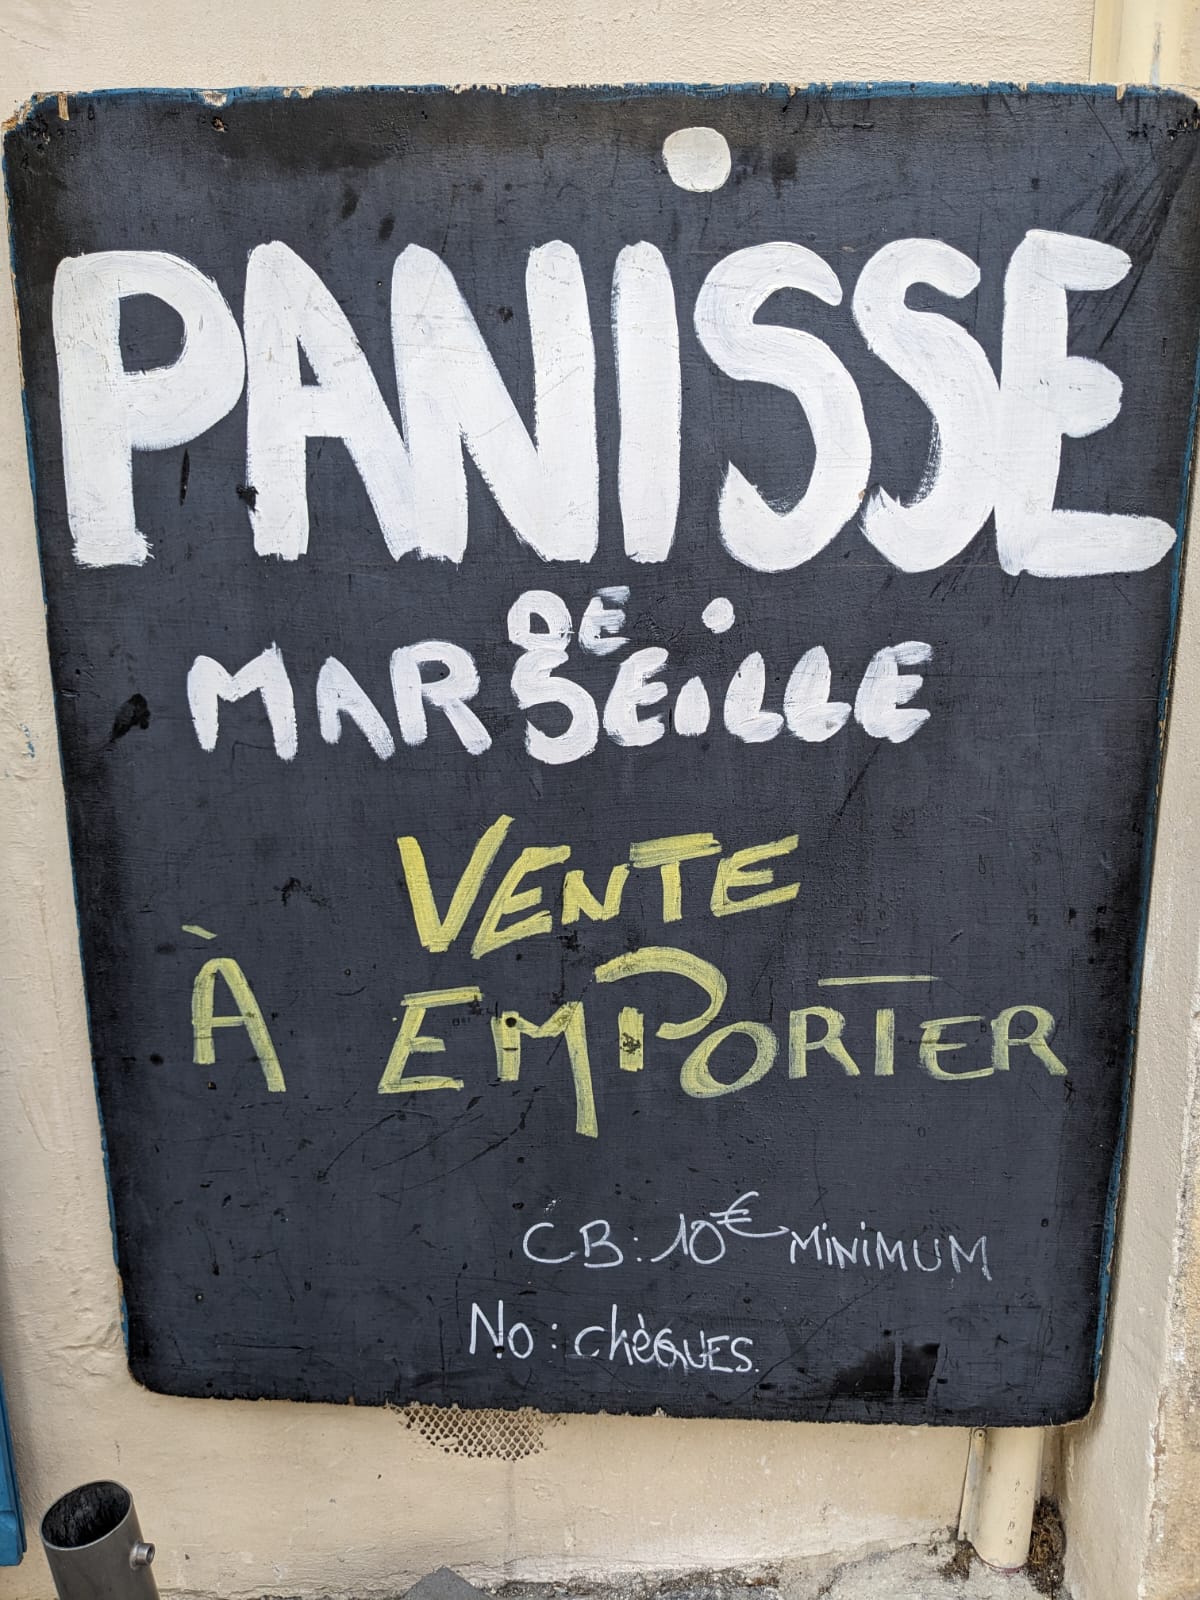 PANiSSE
DE
MARSEiLLE
VENTE
À EMPORTER
CB: 10€ MiNiMUM
No: chèQUES.